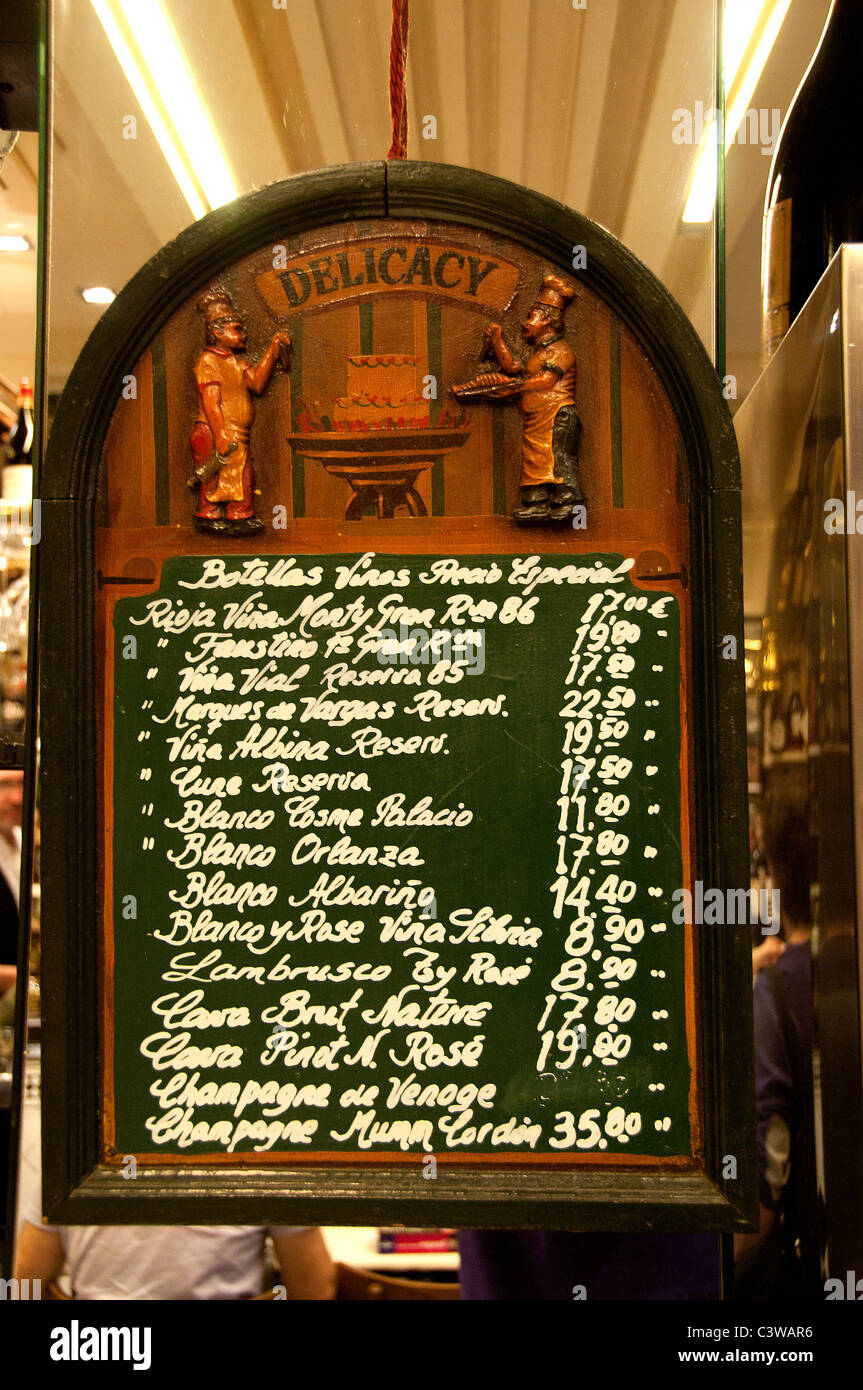 DELICACY
Botellas Vinos Precio Especial
Rioja Viña Monty Gran Rva 86 17,00 €
" Faustino 1º Gran Rva 19.80 "
" Viña Vial Reserva 85 17.50 "
" Marques de Vargas Reserv. 22.50 "
" Viña Albina Reserv. 19.50 "
" Cune Reserva 17.50 "
" Blanco Cosme Palacio 11.80 "
" Blanco Orlanza 17.80 "
Blanco Albariño 14.40 "
Blanco y Rose Viña 8.90 "
Lambrusco T y Rosé 8.90 "
Cava Brut Nature 17.80 "
Cava Pinot N. Rosé 19.90 "
Champagne de Venoge "
Champagne Mumm Cordón 35.80 "
alamy
Image ID: C3WAR6
www.alamy.com